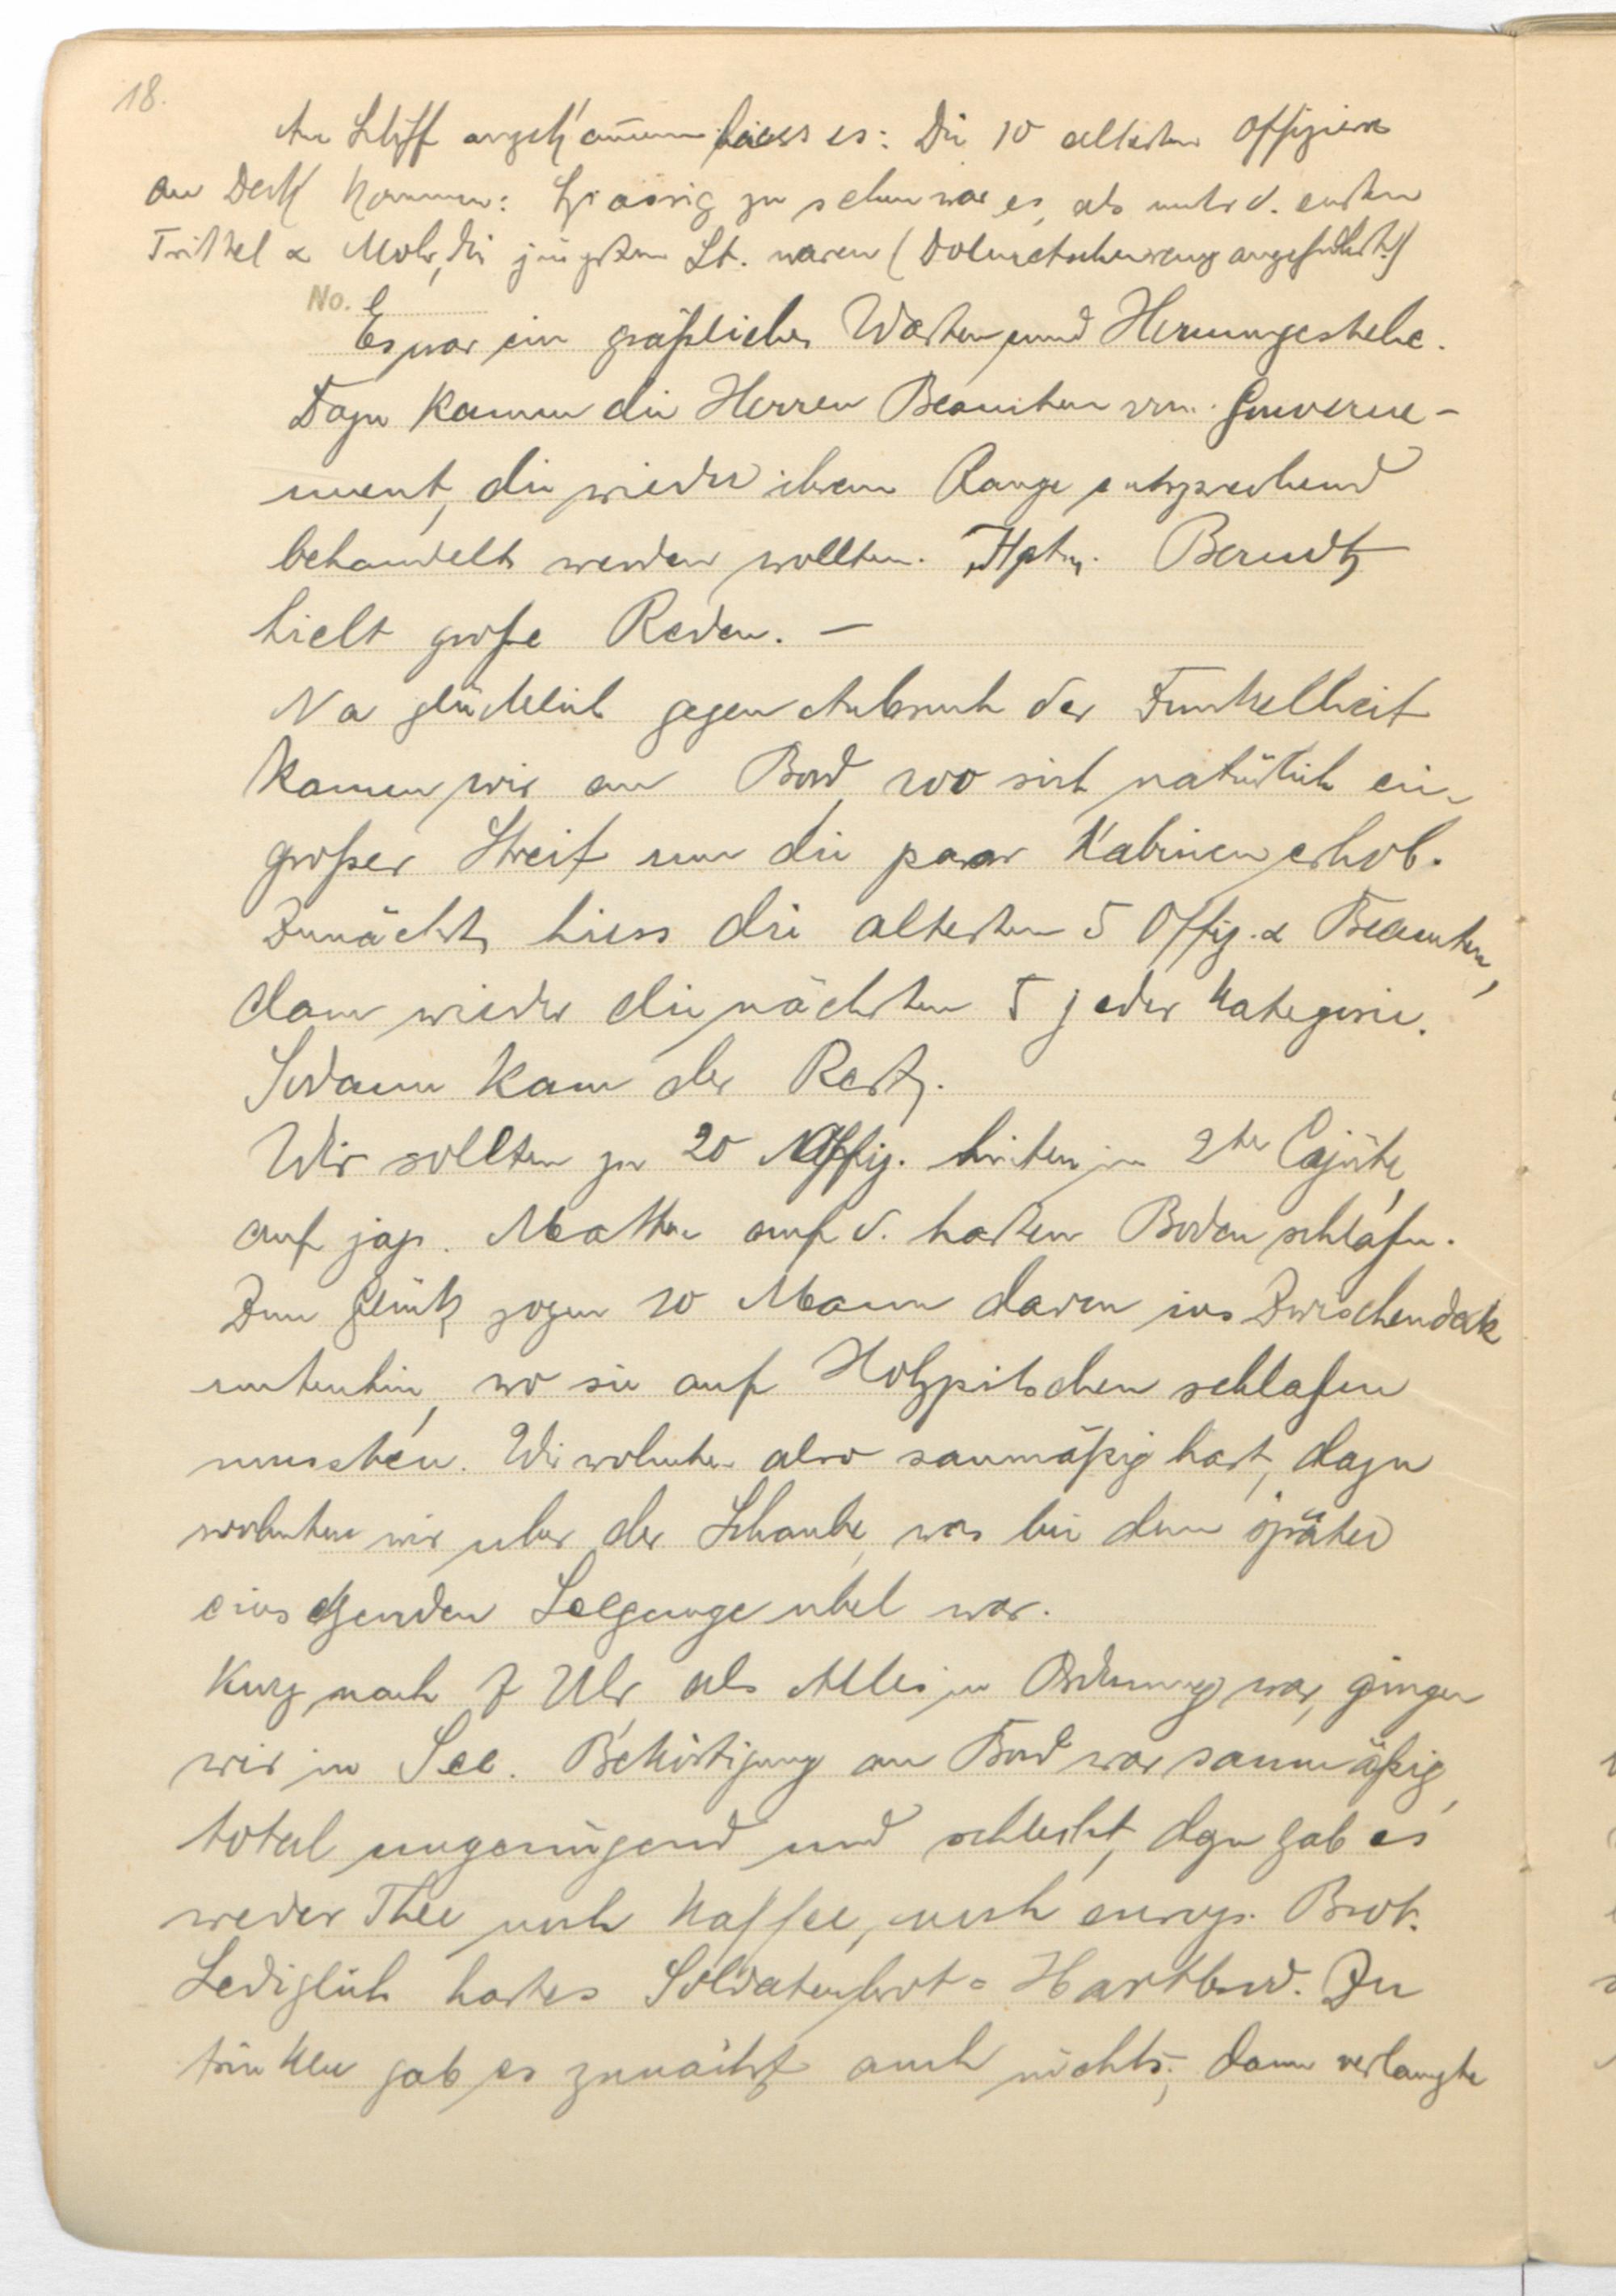 18.
Am Schiff angekommen hiess es: Die 10 altesten Offiziere
an Deck kommen: Spassig zu sehen war es, als unter d. ersten
Trittel & Mohr, die jüngsten Lt. waren (Dolmetscherweg angeführt!)
No.
Es war ein gräßliches Warten und Herumgestehe.
Dazu kamen die Herren Beamten vom Gouverne-
ment, die wieder ihrem Range entsprechend
behandelt werden wollten. Hptm. Berndt
hielt große Reden. —
Na glücklich gegen Anbruch der Dunkelheit
kamen wir an Bord, wo sich natürlich ein
großer Streit um die paar Kabinen erhob.
Zunächst hiess die altesten 5 Offiz. & Beamten,
dann wieder die nächsten 5 jeder Kategorie.
Sodann kam der Rest.
Wir sollten zu 20 Offiz. hinten in 2ter Cajüte,
auf jap. Matten auf d. harten Boden schlafen.
Zum Glück zogen 10 Mann davon ins Zwischendeck
untenhin, wo sie auf Holzpritschen schlafen
mussten. Wir wohnten also saumäßig hart, dazu
wohnten wir uber der Schraube, was bei dem später
einsetzenden Seegange ubel war.
Kurz nach 7 Uhr, als Alles in Ordnung war, gingen
wir in See. Beköstigung an Bord war saumäßig,
total ungenügend und schlecht, dazu gab es
weder Thee noch Kaffee, noch europ. Brot.
Lediglich hartes Soldatenbrot = Hartbrod. Zu
trinken gab es zunächst auch nichts; dann verlangte